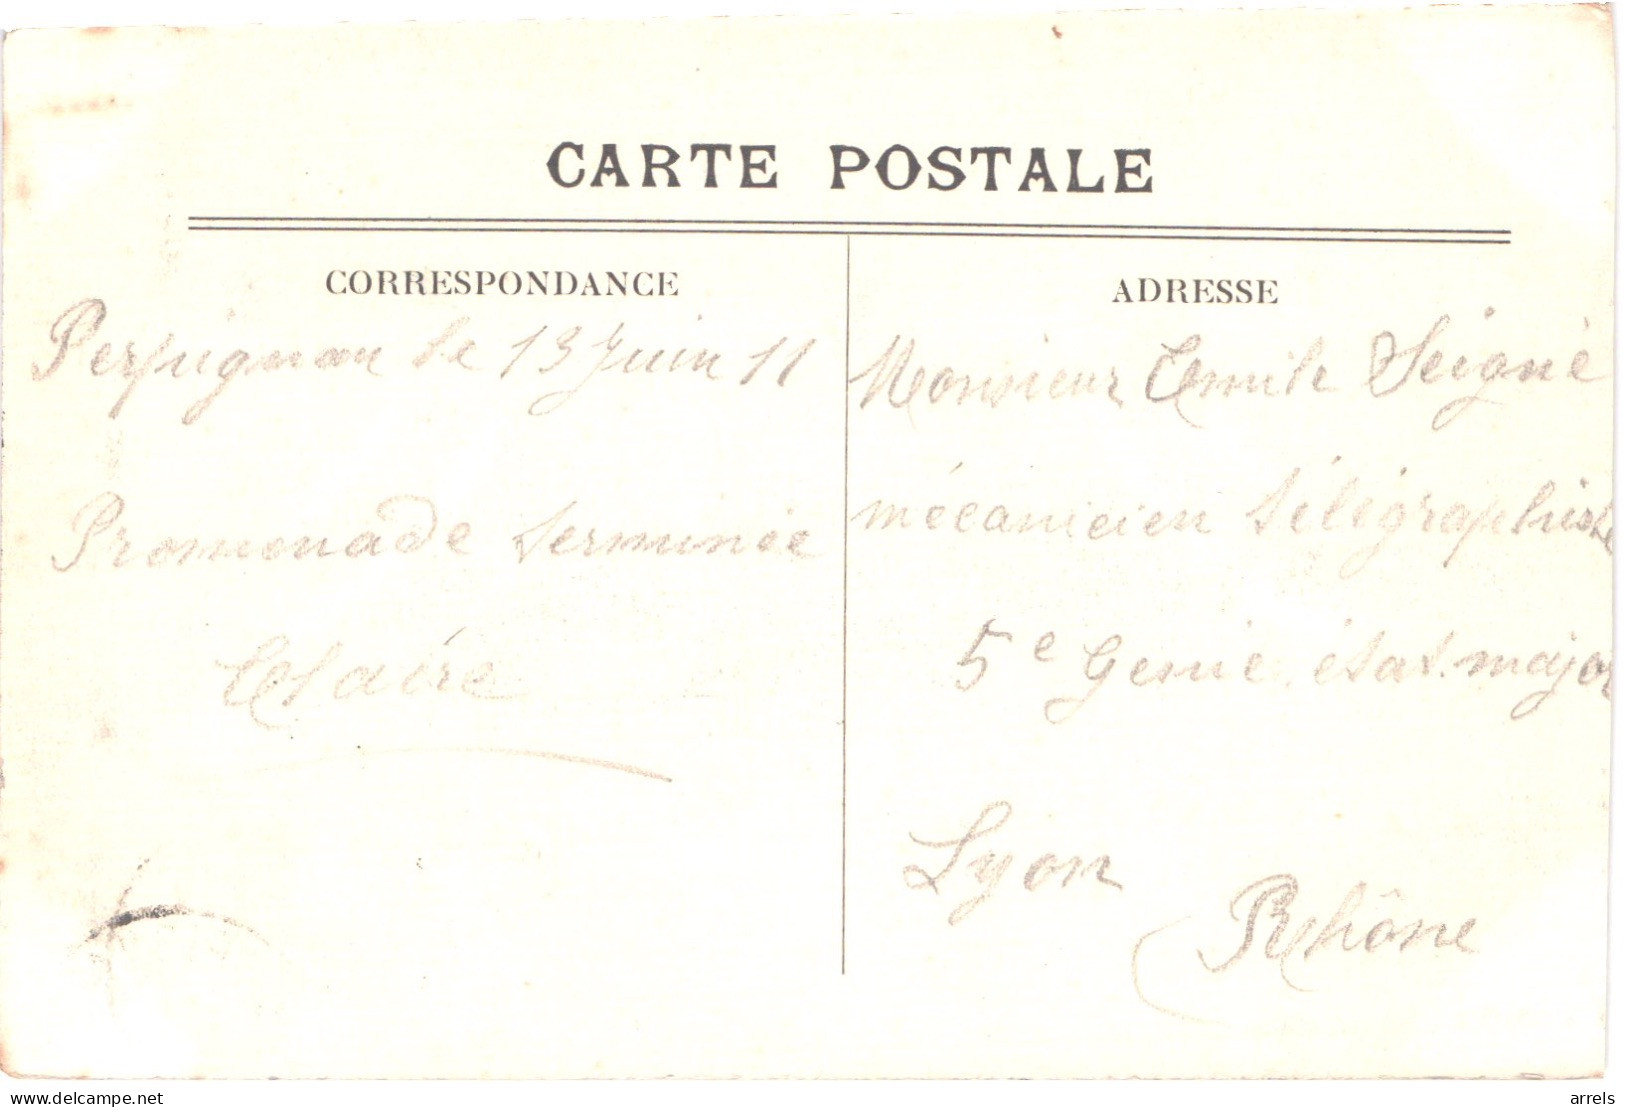 CARTE POSTALE
CORRESPONDANCE
Perpignan le 13 Juin 11
Promenade terminée
Claire
ADRESSE
Monsieur Emile Seigné
mécanicien télégraphiste
5e Genie état major
Lyon
Rhône
delcampe.net
arrels